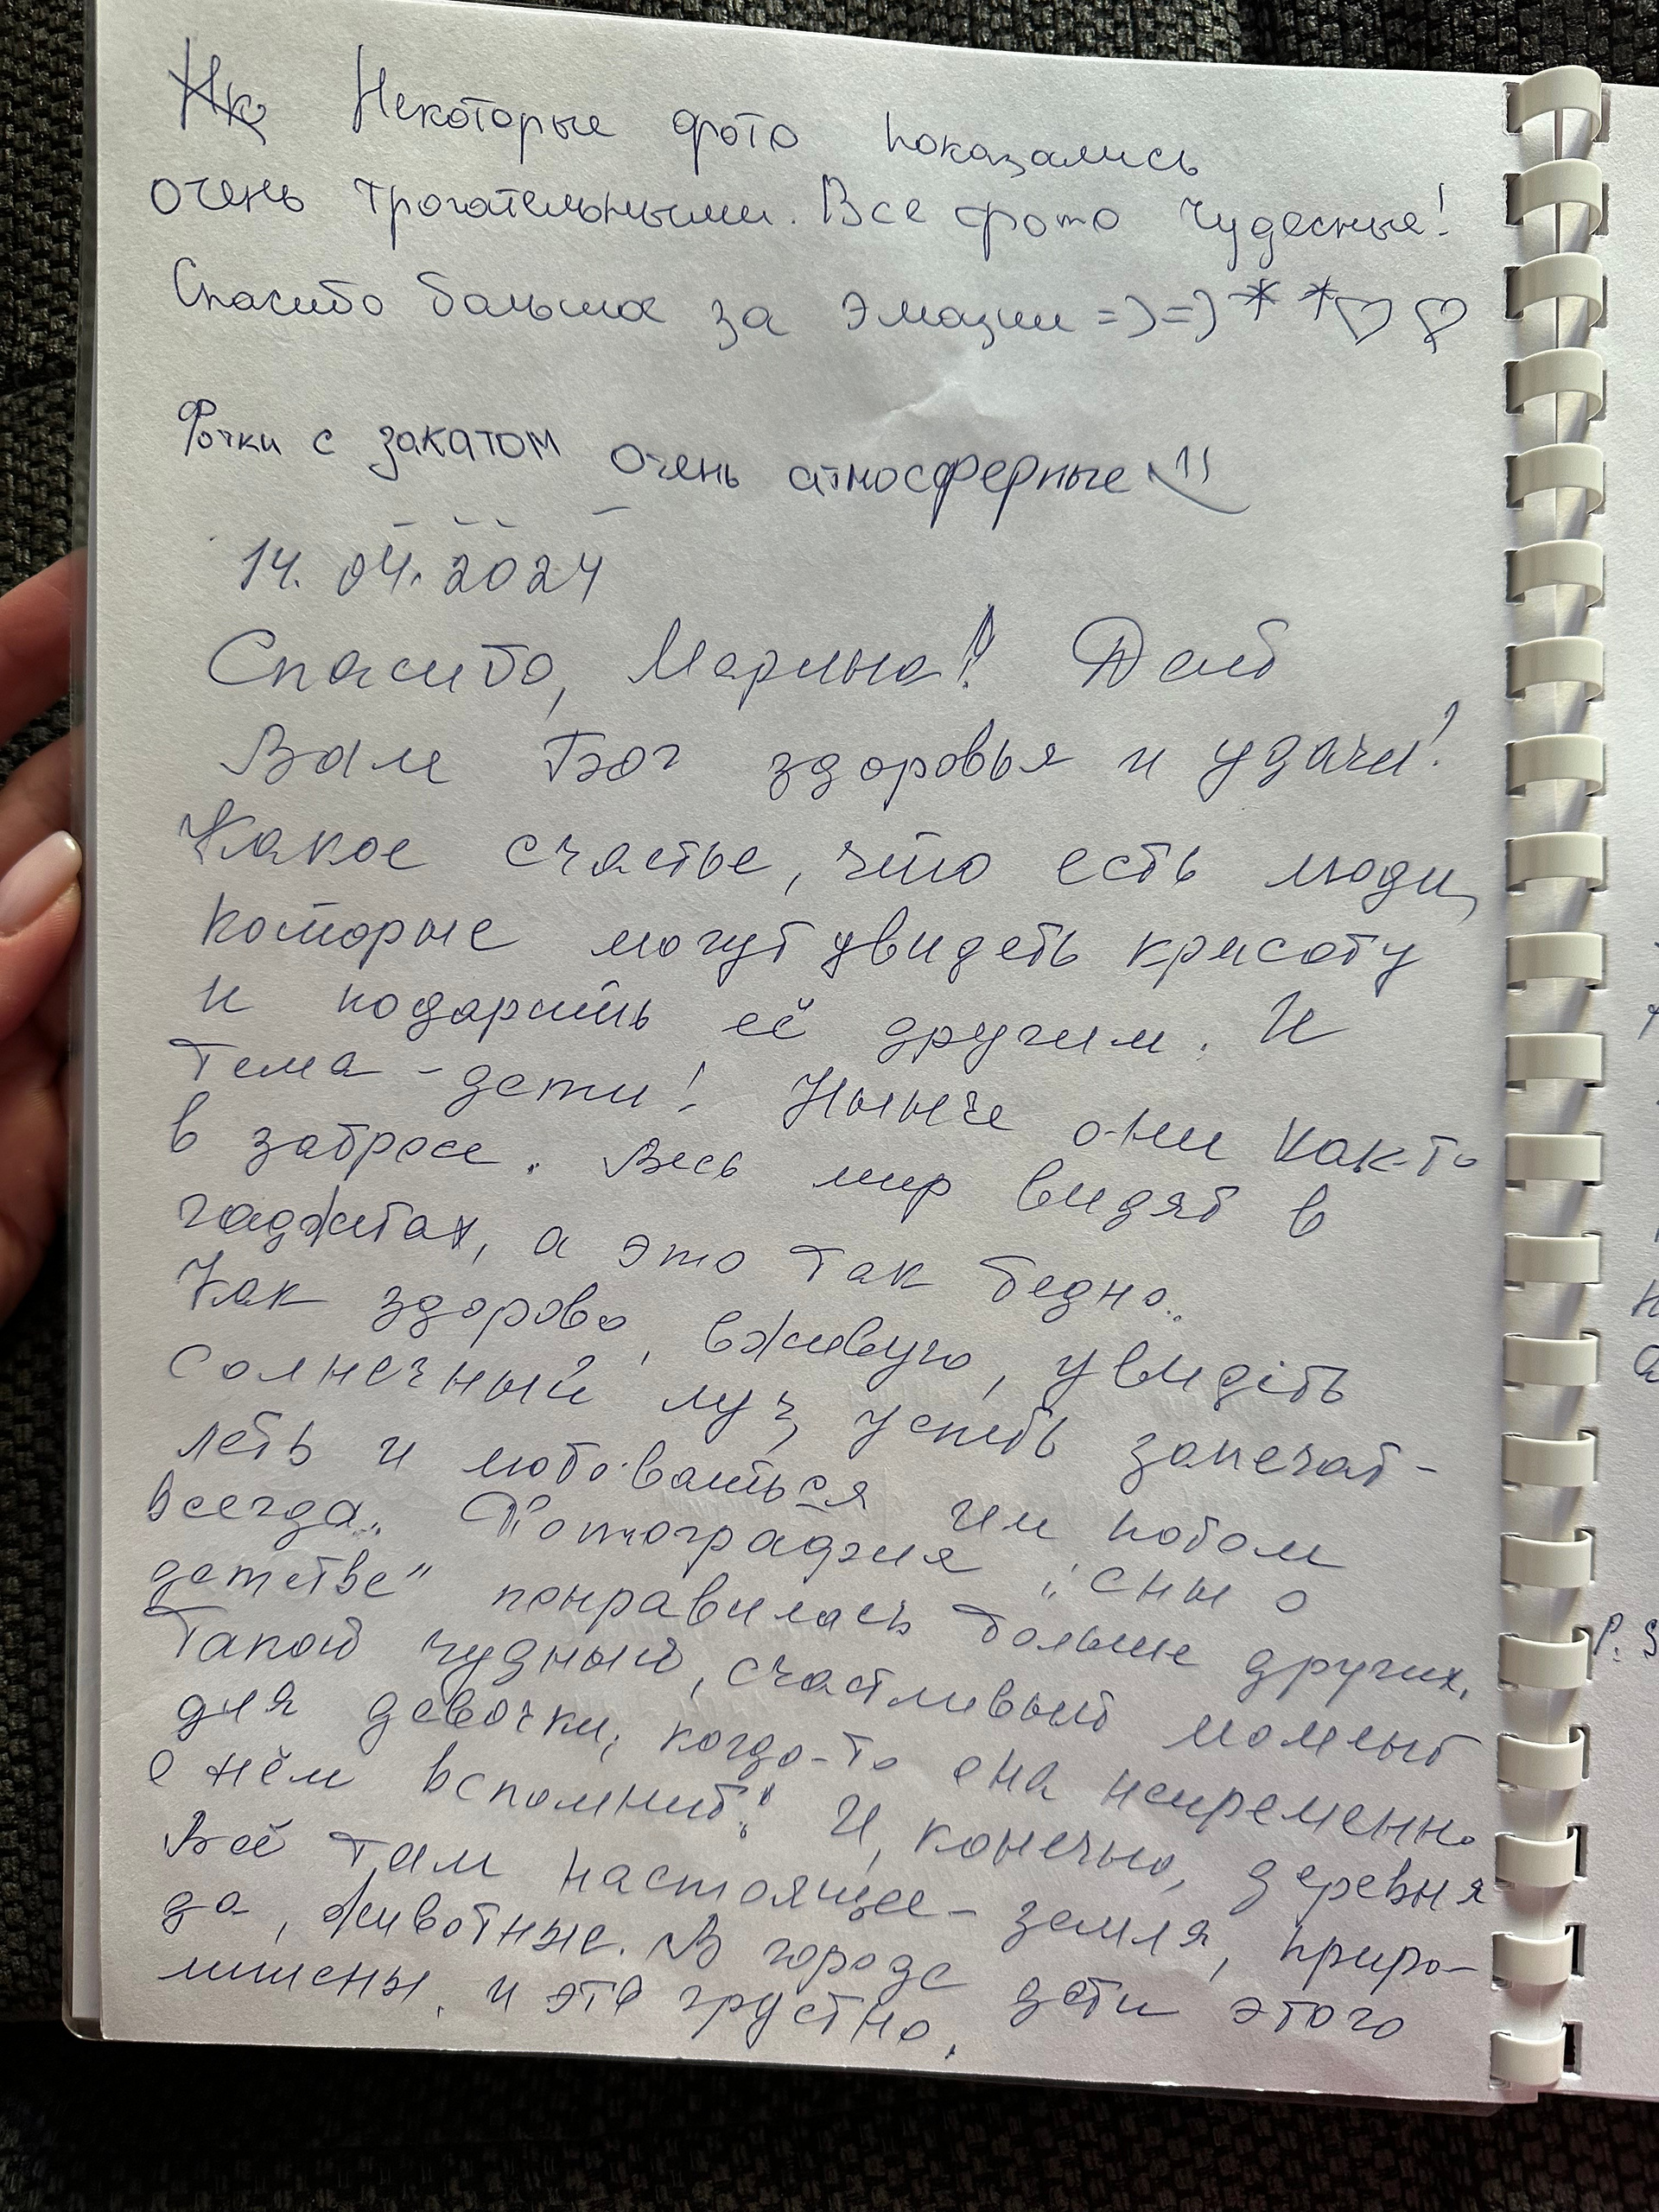 Некоторые фото показались
очень трогательными. Все фото чудесные!
Спасибо большое за эмоции =) =) * * ♡ ♡
Фочки с закатом очень атмосферные
14.04.2024
Спасибо, Марина! Дай
Вам Бог здоровья и удачи!
Какое счастье, что есть люди,
которые могут увидеть красоту
и подарить её другим. И
тема - дети! Нынче они как-то
в забросе. Весь мир видят в
гаджетах, а это так бедно..
Как здорово, вживую, увидеть
солнечный луч, успеть запечат-
леть и любоваться им потом
всегда.. Фотография "Сны о
детстве" понравилась больше других.
Такой чудный, счастливый момент
для девочки, когда-то она непременно
о нём вспомнит! И, конечно, деревня
Всё там настоящее - земля, приро-
да, животные. В городе дети этого
лишены, и это грустно.
P. S